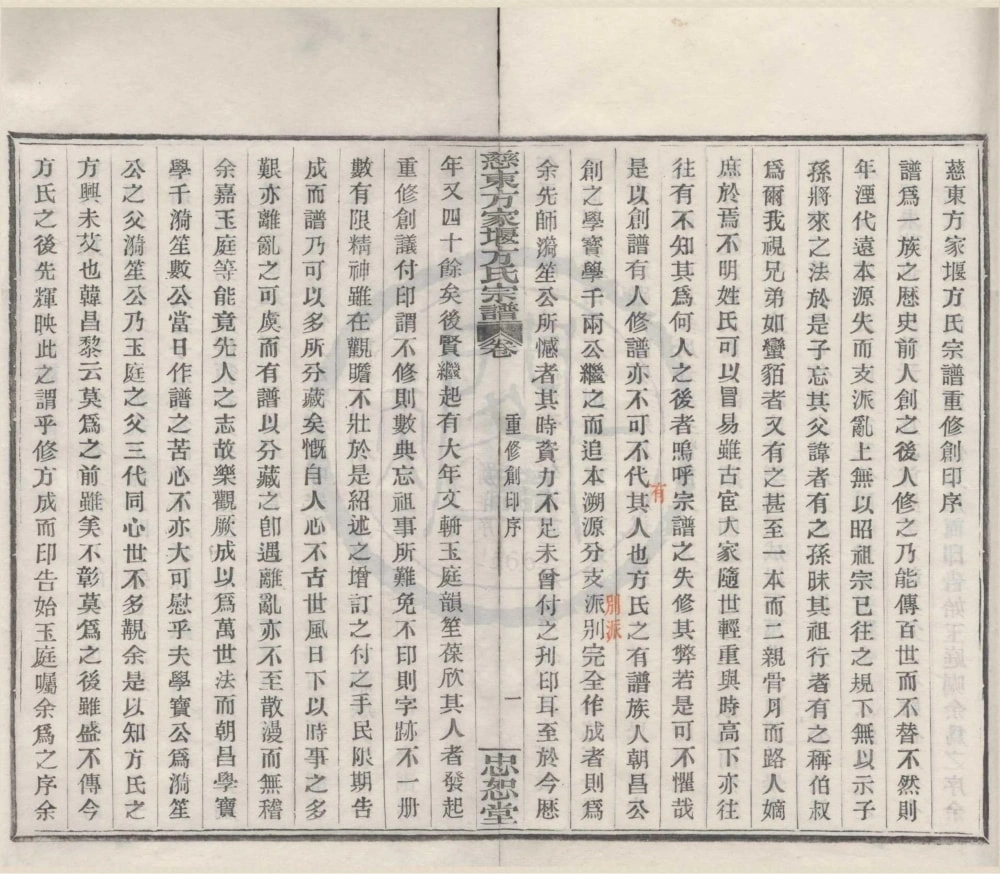 慈東方家堰方氏宗譜重修創印序
譜爲一族之歷史前人創之後人修之乃能傳百世而不替不然則
年湮代遠本源失而支派亂上無以昭祖宗已往之規下無以示子
孫將來之法於是子忘其父諱者有之孫昧其祖行者有之稱伯叔
爲爾我視兄弟如蠻貊者又有之甚至一本而二親骨月而路人嫡
庶於焉不明姓氏可以冒易雖古宦大家隨世輕重與時高下亦往
往有不知其爲何人之後者嗚呼宗譜之失修其弊若是可不懼哉
是以創譜有人修譜亦不可不代其人也方氏之有譜族人朝昌公
有
創之學寶學千兩公繼之而追本溯源分支派别完全作成者則爲
別派
余先師漪笙公所憾者其時資力不足未曾付之刊印耳至於今歷
慈東方家堰方氏宗譜
卷
重修創印序
一
忠恕堂
年又四十餘矣後賢繼起有大年文耕玉庭韻笙葆欣其人者發起
重修創議付印謂不修則數典忘祖事所難免不印則字跡不一册
數有限精神雖在觀瞻不壯於是紹述之增訂之付之手民限期告
成而譜乃可以多所分藏矣慨自人心不古世風日下以時事之多
艱亦離亂之可虞而有譜以分藏之卽遇離亂亦不至散漫而無稽
余嘉玉庭等能竟先人之志故樂觀厥成以爲萬世法而朝昌學寶
學千漪笙數公當日作譜之苦心不亦大可慰乎夫學寶公爲漪笙
公之父漪笙公乃玉庭之父三代同心世不多覯余是以知方氏之
方興未艾也韓昌黎云莫爲之前雖美不彰莫爲之後雖盛不傳今
方氏之後先輝映此之謂乎修方成而印告始玉庭囑余爲之序余